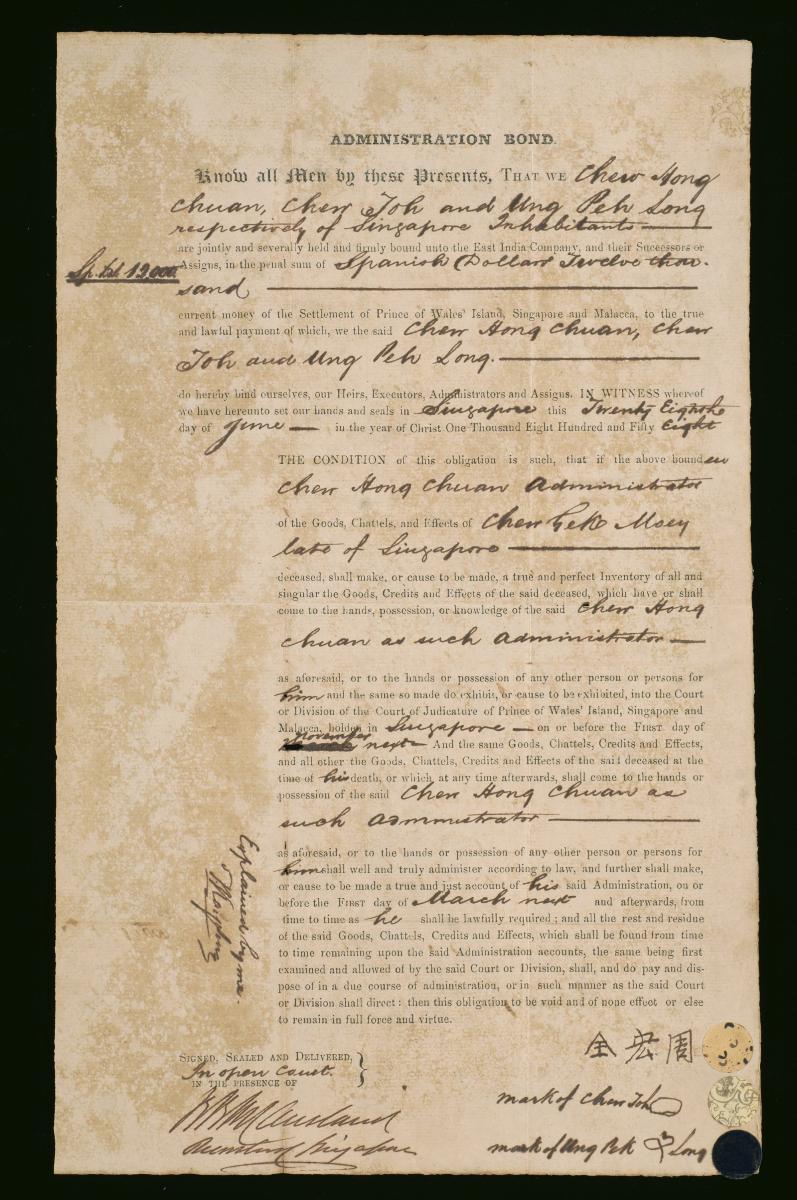 ADMINISTRATION BOND.
Know all Men by these Presents, THAT WE Chew Hong
Chuan, Chew Joh and Ung Peh Long
respectively of Singapore Inhabitants
are jointly and severally held and firmly bound unto the East India Company, and their Successors or
Sp. Dol. 12,000 Assigns, in the penal sum of Spanish Dollars Twelve thou-
sand
current money of the Settlement of Prince of Wales' Island, Singapore and Malacca, to the true
and lawful payment of which, we the said Chew Hong Chuan, Chew
Joh and Ung Peh Long.
do hereby bind ourselves, our Heirs, Executors, Administrators and Assigns. IN WITNESS whereof
we have hereunto set our hands and seals in Singapore this Twenty Eighth
day of June in the year of Christ One Thousand Eight Hundred and Fifty Eight
THE CONDITION of this obligation is such, that if the above bounden
Chew Hong Chuan Administrator
of the Goods, Chattels, and Effects of Chew Gek Moey
late of Singapore
deceased, shall make, or cause to be made, a true and perfect Inventory of all and
singular the Goods, Credits and Effects of the said deceased, which have or shall
come to the hands, possession, or knowledge of the said Chew Hong
Chuan as such Administrator
as aforesaid, or to the hands or possession of any other person or persons for
him and the same so made do exhibit, or cause to be exhibited, into the Court
or Division of the Court of Judicature of Prince of Wales' Island, Singapore and
Malacca, holden in Singapore on or before the FIRST day of
November next And the same Goods, Chattels, Credits and Effects,
and all other the Goods, Chattels, Credits and Effects of the said deceased at the
time of his death, or which at any time afterwards, shall come to the hands or
possession of the said Chew Hong Chuan as
such Administrator
as aforesaid, or to the hands or possession of any other person or persons for
him shall well and truly administer according to law, and further shall make,
or cause to be made a true and just account of his said Administration, on or
before the FIRST day of March next and afterwards, from
time to time as he shall be lawfully required; and all the rest and residue
of the said Goods, Chattels, Credits and Effects, which shall be found from time
to time remaining upon the said Administration accounts, the same being first
examined and allowed of by the said Court or Division, shall, and do pay and dis-
pose of in a due course of administration, or in such manner as the said Court
or Division shall direct: then this obligation to be void and of none effect or else
to remain in full force and virtue.
Explained by me.
全宏周
SIGNED, SEALED AND DELIVERED,
In open Court.
IN THE PRESENCE OF
mark of Chew Joh
mark of Ung Peh Long